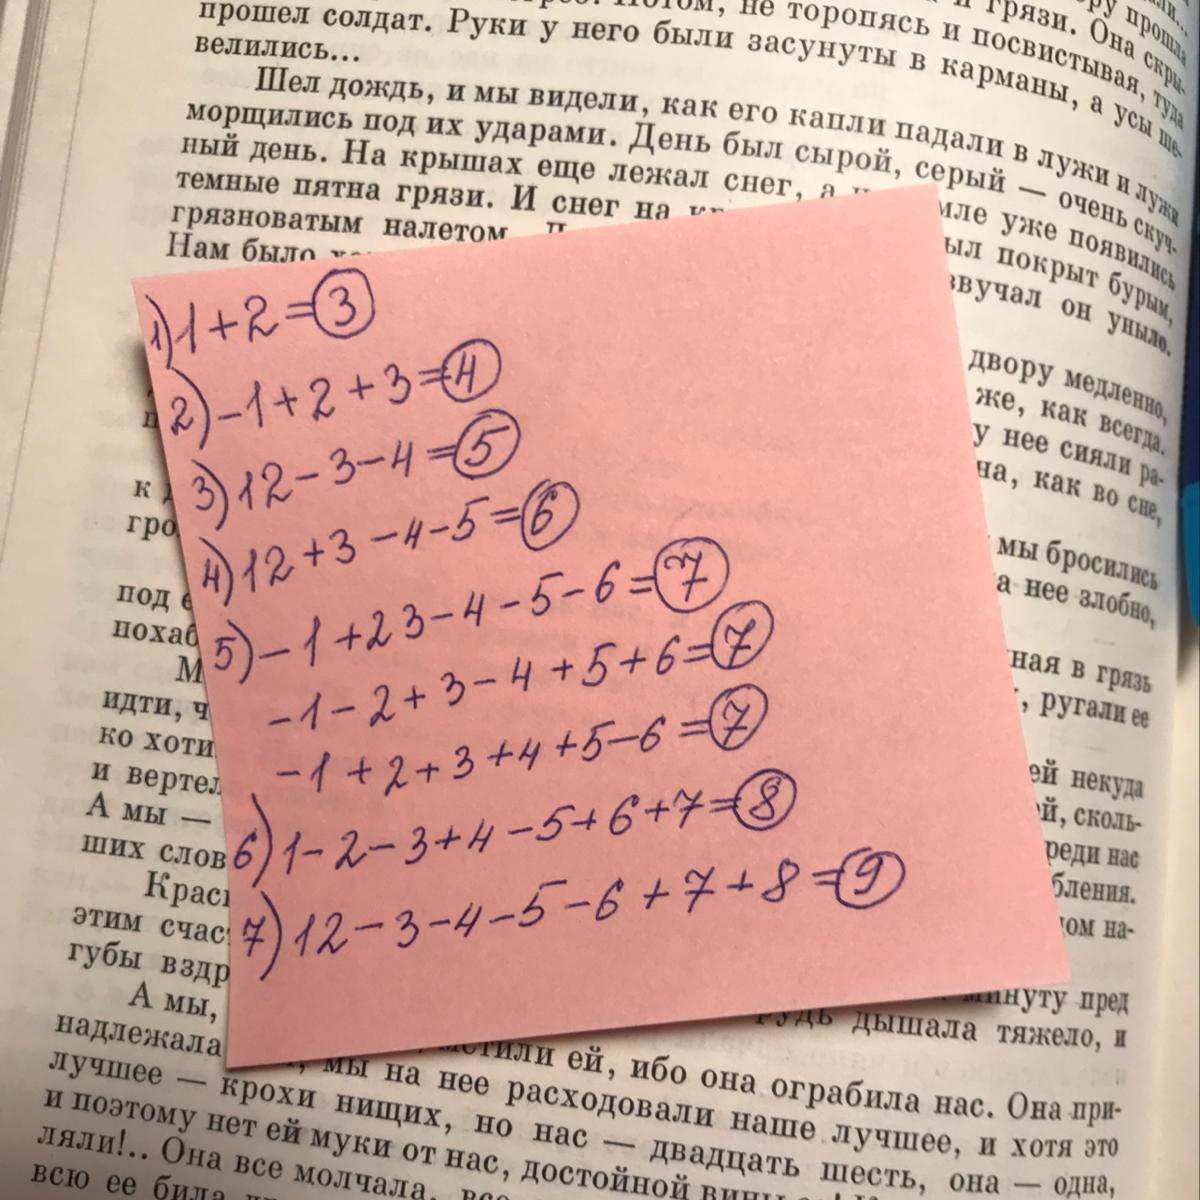 не торопясь и посвистывая, туда
прошел солдат. Руки у него были засунуты в карманы, а усы ше-
велились...
Шел дождь, и мы видели, как его капли падали в лужи и лужи
морщились под их ударами. День был сырой, серый — очень скуч-
ный день. На крышах еще лежал снег, а уже появились
темные пятна грязи. И снег на был покрыт бурым,
грязноватым налетом. звучал он уныло.
Нам было
1) 1+2=3
2) -1+2+3=4
3) 12-3-4=5
4) 12+3-4-5=6
5) -1+23-4-5-6=7
-1-2+3-4+5+6=7
-1+2+3+4+5-6=7
6) 1-2-3+4-5+6+7=8
7) 12-3-4-5-6+7+8=9
двору медленно,
же, как всегда.
у нее сияли ра-
на, как во сне,
мы бросились
под на нее злобно,
в грязь
идти, ругали ее
ко хоти ей некуда
и вертел сколь-
А мы — реди нас
ших слов
этим счас ом на-
губы вздр
А мы, минуту пред
надлежала дышала тяжело, и
мстили ей, ибо она ограбила нас. Она при-
мы на нее расходовали наше лучшее, и хотя это
лучшее — крохи нищих, но нас — двадцать шесть, она — одна,
и поэтому нет ей муки от нас, достойной вины
ляли!.. Она все молчала,
всю ее била